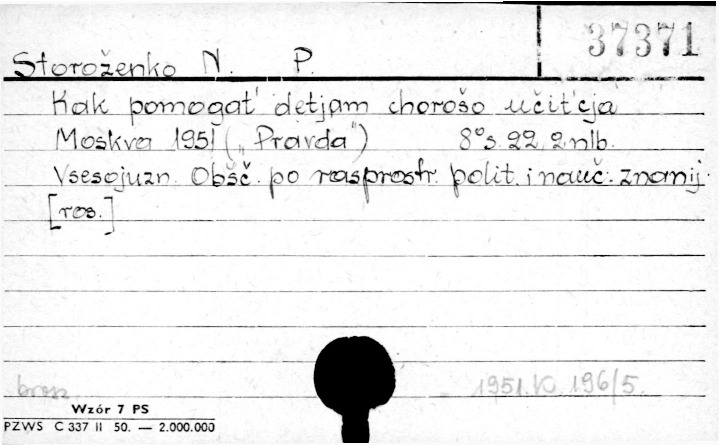 37371
Storoženko N. P.
Kak pomogat' detjam chorošo učit'cja
Moskva 1951 („Pravda") 8° s. 22, 2 nlb.
Vsesojuzn. Obšč. po rasprostr. polit. i nauč. znanij.
[ros.]
brosz.
1951.K.196/5.
Wzór 7 PS
PZWS C 337 II 50. — 2.000.000